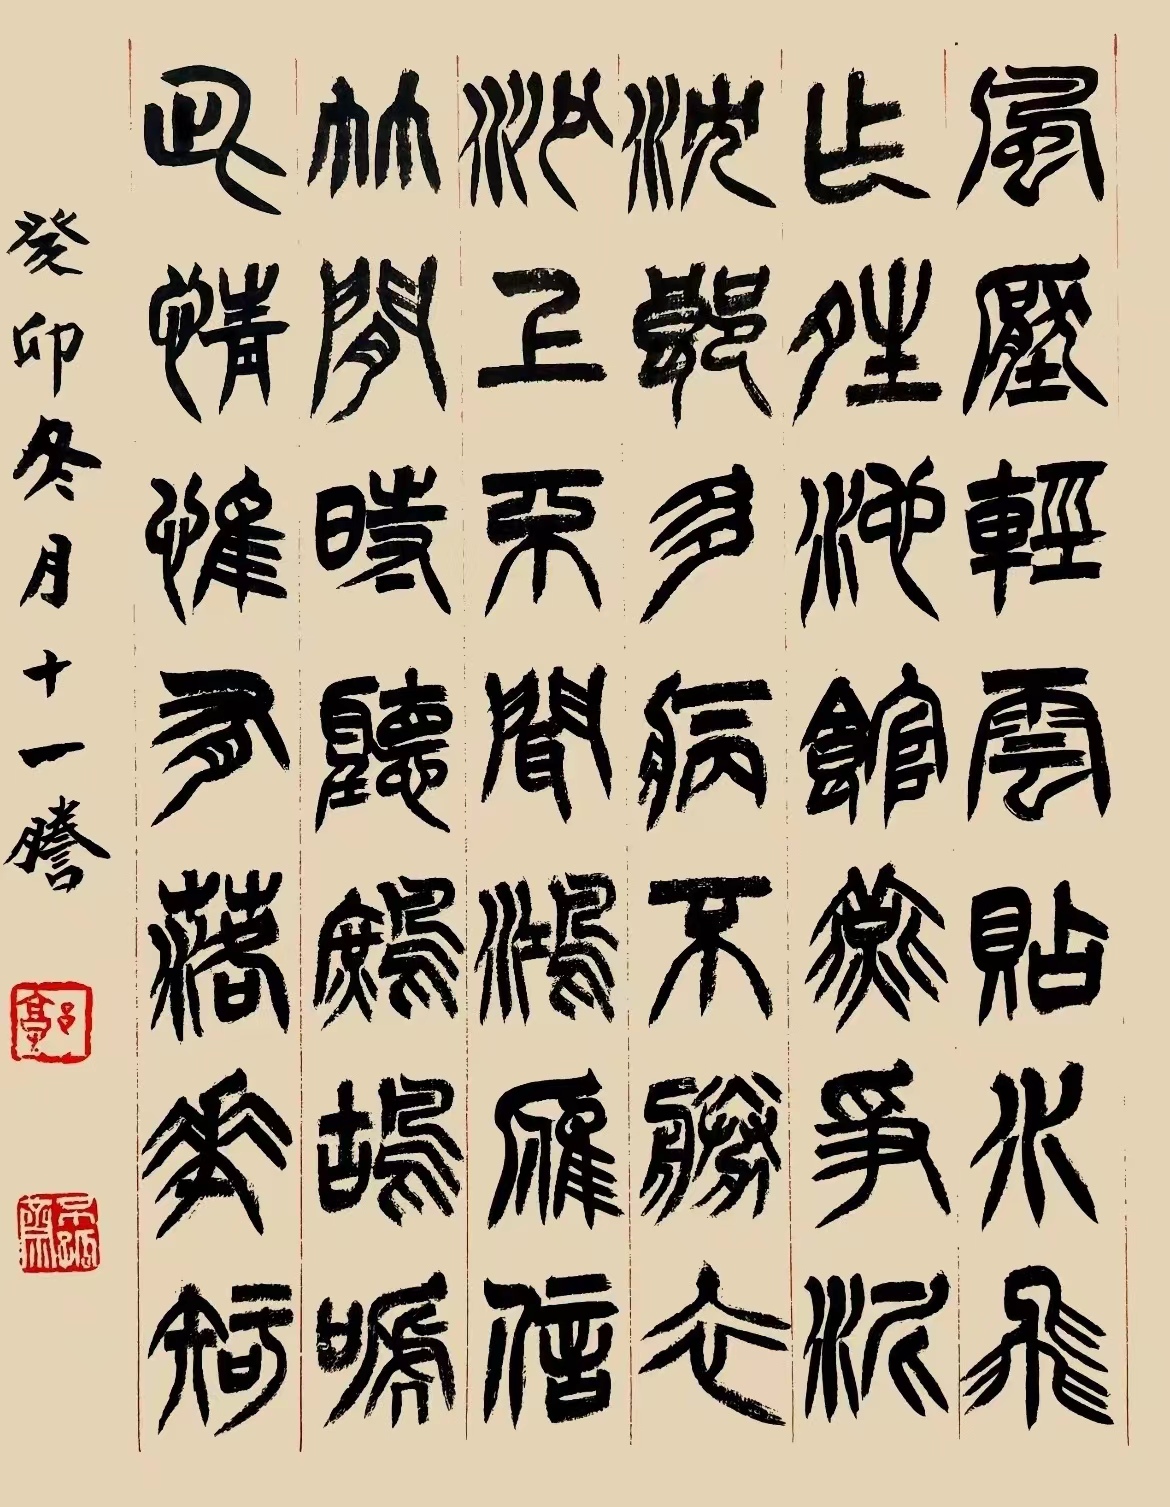 風壓輕雲貼水飛
乍晴池館燕爭泥
沈郎多病不勝衣
沙上不聞鴻雁信
竹間時聽鷓鴣啼
此情惟有落花知
癸卯冬月十一謄